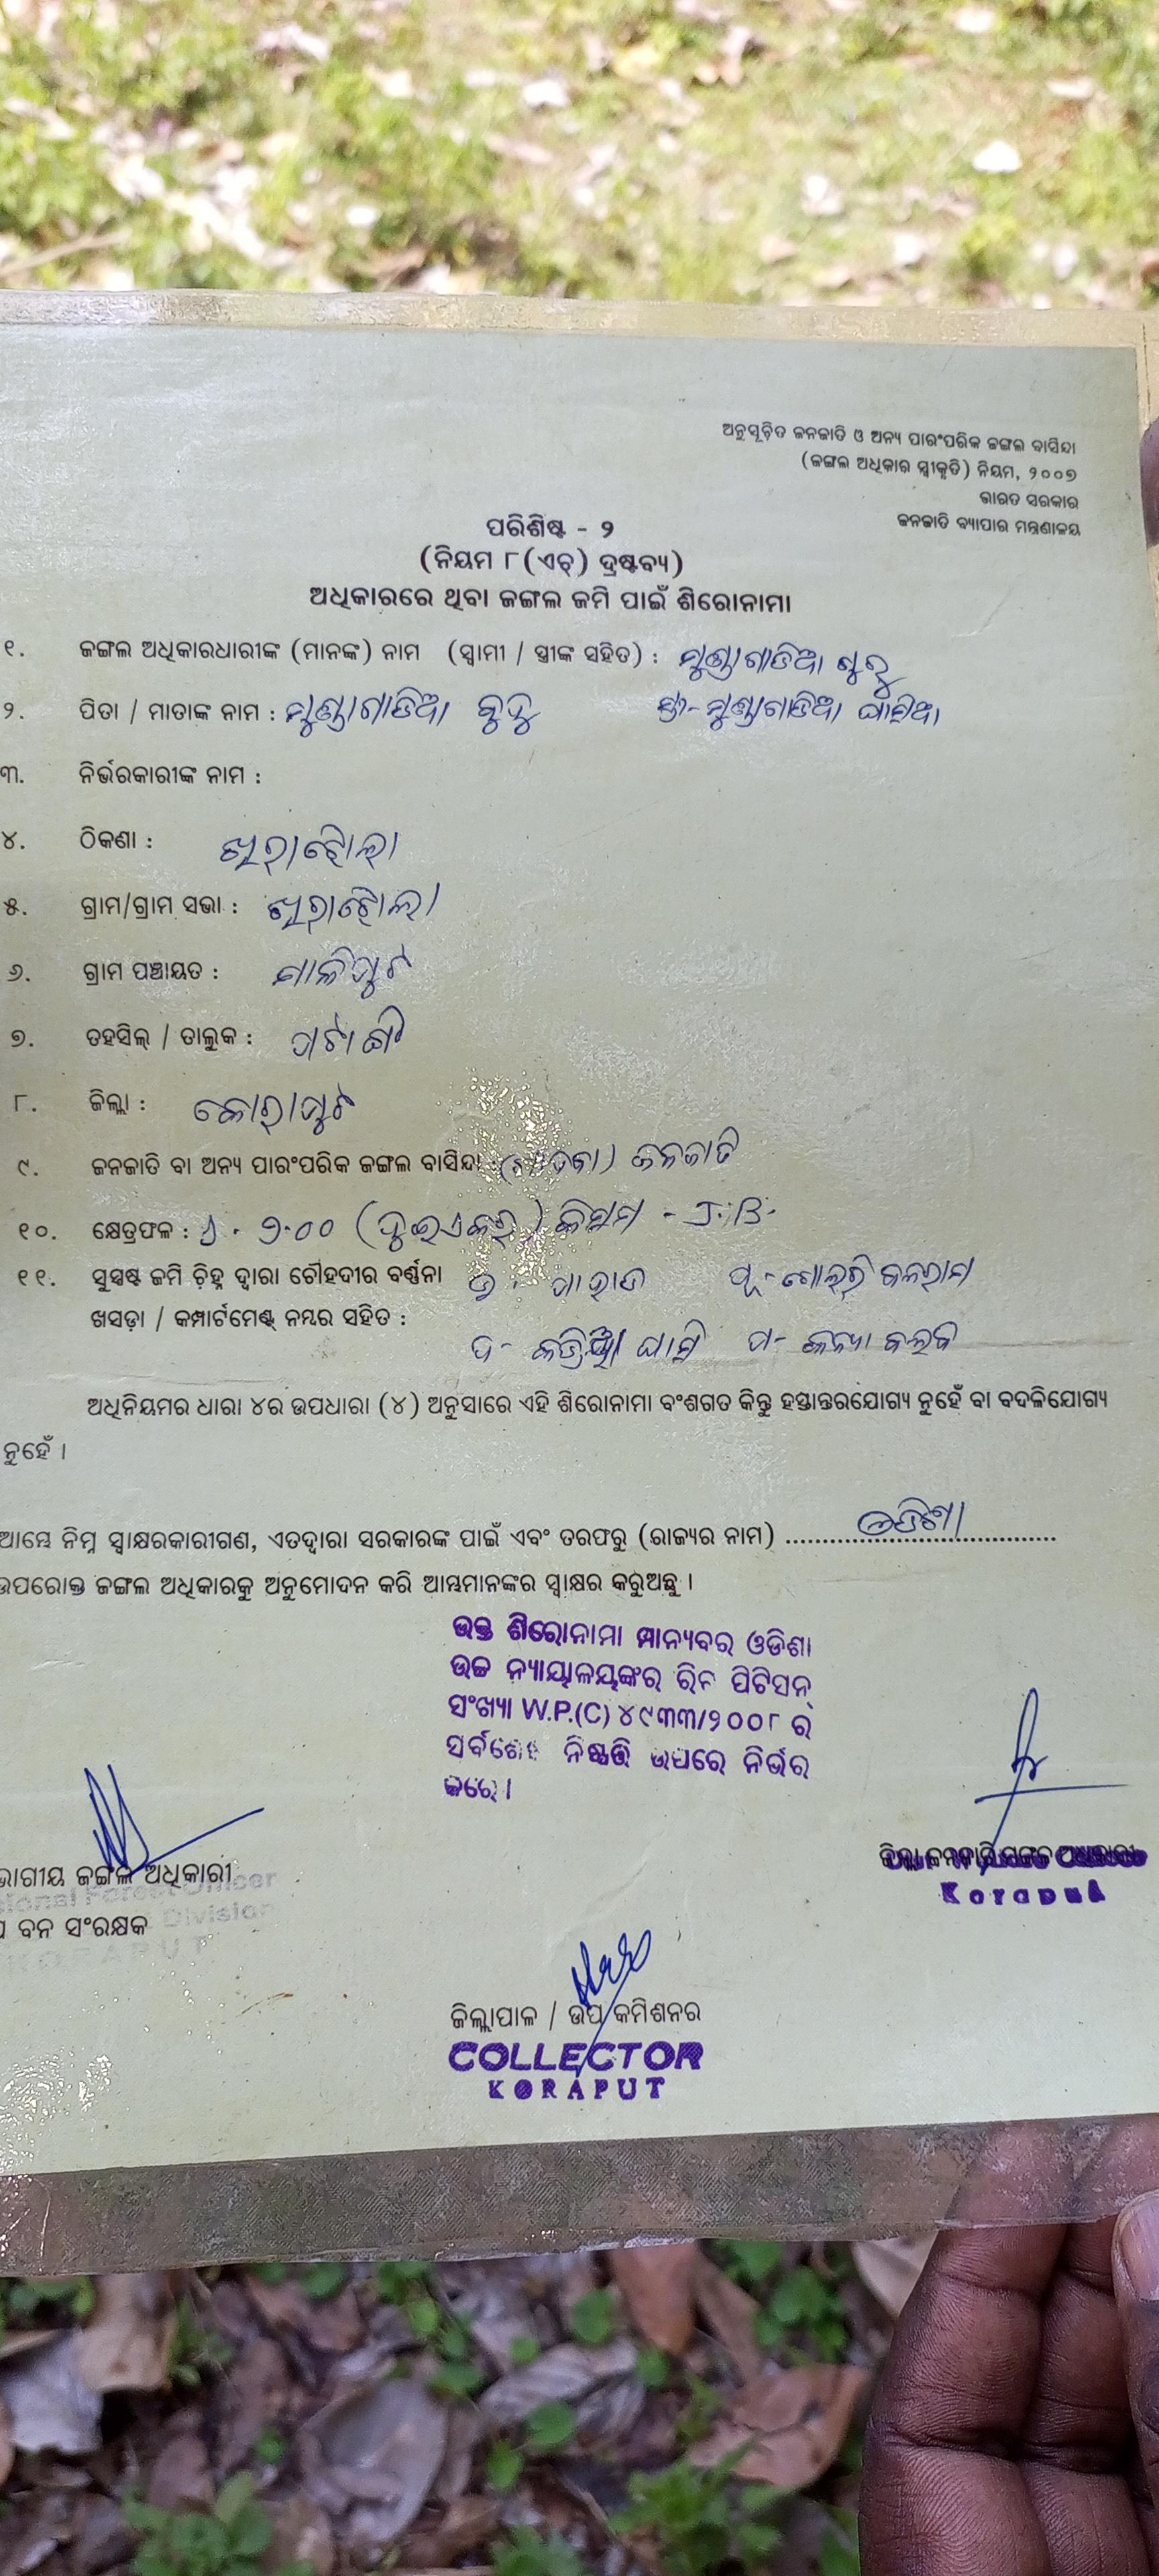 ଅନୁସୂଚିତ ଜନଜାତି ଓ ଅନ୍ୟ ପାରଂପରିକ ଜଙ୍ଗଲ ବାସିନ୍ଦା
(ଜଙ୍ଗଲ ଅଧିକାର ସ୍ୱୀକୃତି) ନିୟମ, ୨୦୦୭
ଭାରତ ସରକାର
ଜନଜାତି ବ୍ୟାପାର ମନ୍ତ୍ରଣାଳୟ
ପରିଶିଷ୍ଟ - ୨
(ନିୟମ ୮(ଏଚ୍) ଦ୍ରଷ୍ଟବ୍ୟ)
ଅଧିକାରରେ ଥିବା ଜଙ୍ଗଲ ଜମି ପାଇଁ ଶିରୋନାମା
୧. ଜଙ୍ଗଲ ଅଧିକାରଧାରୀଙ୍କ (ମାନଙ୍କ) ନାମ (ସ୍ୱାମୀ / ସ୍ତ୍ରୀଙ୍କ ସହିତ) : ମୁଣ୍ଡାଗାଡିଆ
୨. ପିତା / ମାତାଙ୍କ ନାମ : ମୁଣ୍ଡାଗାଡିଆ ବୁଦୁ ସ୍ତ୍ରୀ- ମୁଣ୍ଡାଗାଡିଆ
୩. ନିର୍ଭରକାରୀଙ୍କ ନାମ :
୪. ଠିକଣା :
୫. ଗ୍ରାମ/ଗ୍ରାମ ସଭା :
୬. ଗ୍ରାମ ପଞ୍ଚାୟତ :
୭. ତହସିଲ୍ / ତାଲୁକ : ପଟାଙ୍ଗୀ
୮. ଜିଲ୍ଲା : କୋରାପୁଟ
୯. ଜନଜାତି ବା ଅନ୍ୟ ପାରଂପରିକ ଜଙ୍ଗଲ ବାସିନ୍ଦା : ଜନଜାତି
୧୦. କ୍ଷେତ୍ରଫଳ : ୨.୦୦ (ଦୁଇଏକର) କିସମ - J.B.
୧୧. ସୁସ୍ପଷ୍ଟ ଜମି ଚିହ୍ନ ଦ୍ୱାରା ଚୌହଦୀର ବର୍ଣ୍ଣନା ଉ - ପାହାଡ ପୂ - ବଳରାମ
ଖସଡ଼ା / କମ୍ପାର୍ଟମେଣ୍ଟ୍ ନମ୍ବର ସହିତ : ଦ - ପ -
ଅଧିନିୟମର ଧାରା ୪ର ଉପଧାରା (୪) ଅନୁସାରେ ଏହି ଶିରୋନାମା ବଂଶଗତ କିନ୍ତୁ ହସ୍ତାନ୍ତରଯୋଗ୍ୟ ନୁହେଁ ବା ବଦଳିଯୋଗ୍ୟ
ନୁହେଁ ।
ଆମ୍ଭେ ନିମ୍ନ ସ୍ୱାକ୍ଷରକାରୀଗଣ, ଏତଦ୍ୱାରା ସରକାରଙ୍କ ପାଇଁ ଏବଂ ତରଫରୁ (ରାଜ୍ୟର ନାମ) ଓଡିଶା
ଉପରୋକ୍ତ ଜଙ୍ଗଲ ଅଧିକାରକୁ ଅନୁମୋଦନ କରି ଆମ୍ଭମାନଙ୍କର ସ୍ୱାକ୍ଷର କରୁଅଛୁ ।
ଉକ୍ତ ଶିରୋନାମା ମାନ୍ୟବର ଓଡିଶା
ଉଚ୍ଚ ନ୍ୟାୟାଳୟଙ୍କର ରିଟ ପିଟିସନ୍
ସଂଖ୍ୟା W.P.(C) ୪୯୩୩/୨୦୦୮ ର
ସର୍ବଶେଷ ନିଷ୍ପତ୍ତି ଉପରେ ନିର୍ଭର
କରେ ।
ଜଙ୍ଗଲ ଅଧିକାରୀ
ବନ ସଂରକ୍ଷକ
Division
KORAPUT
ଜିଲ୍ଲା ଜନଜାତି ମଙ୍ଗଳ ଅଧିକାରୀ
Koraput
ଜିଲ୍ଲାପାଳ / ଉପ କମିଶନର
COLLECTOR
KORAPUT